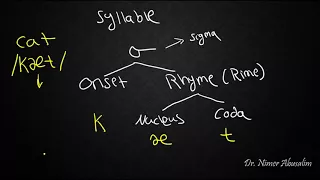 Syllable
cat
/kæt/
σ → sigma
Onset Rhyme (Rime)
Nucleus Coda
K æ t
Dr. Nimer Abusalim